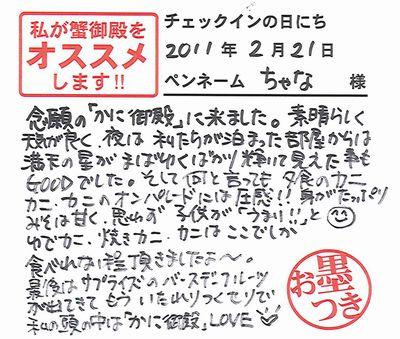 私が蟹御殿を
オススメ
します!!
チェックインの日にち
2011年2月21日
ペンネーム ちゃな 様
念願の「かに御殿」に来ました。素晴らしく
景が良く、夜は私たちが泊まった部屋からは
満天の星がまばゆくばかり輝いて見えた事も
GOODでした。そして何と言っても夕食のカニ
カニ・カニのオンパレードには圧感!!身がたっぷり
みそは甘く、思わず子供が「うまい!!」と
ゆでカニ、焼きカニ、カニはここでしか
食べれない程頂きましたよ〜。
最後はサプライズのバースデーフルーツ
が出てきてもういたれりつくせりで
私の頭の中は「かに御殿」LOVE
お墨つき